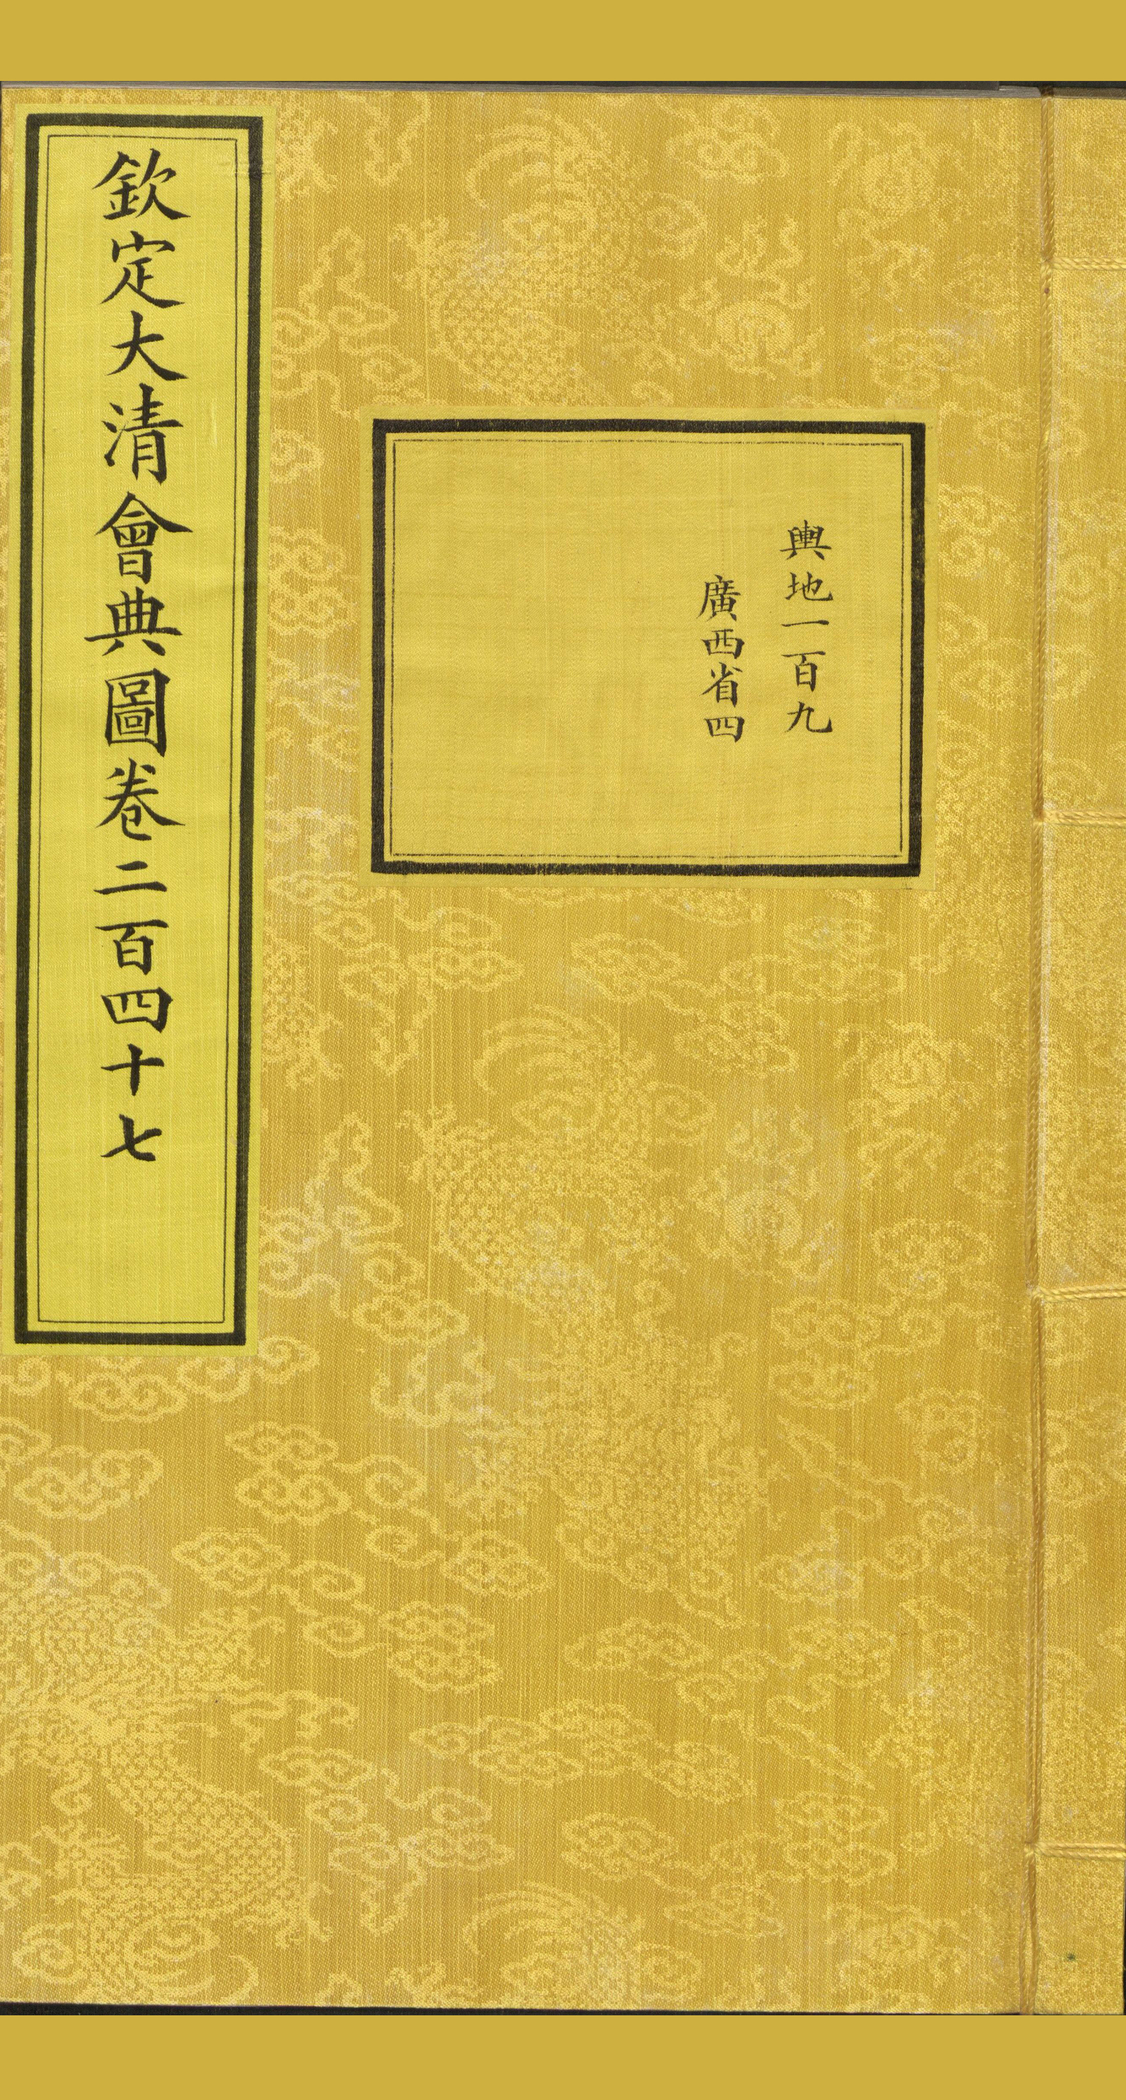 輿地一百九
廣西省四
欽定大清會典圖卷二百四十七